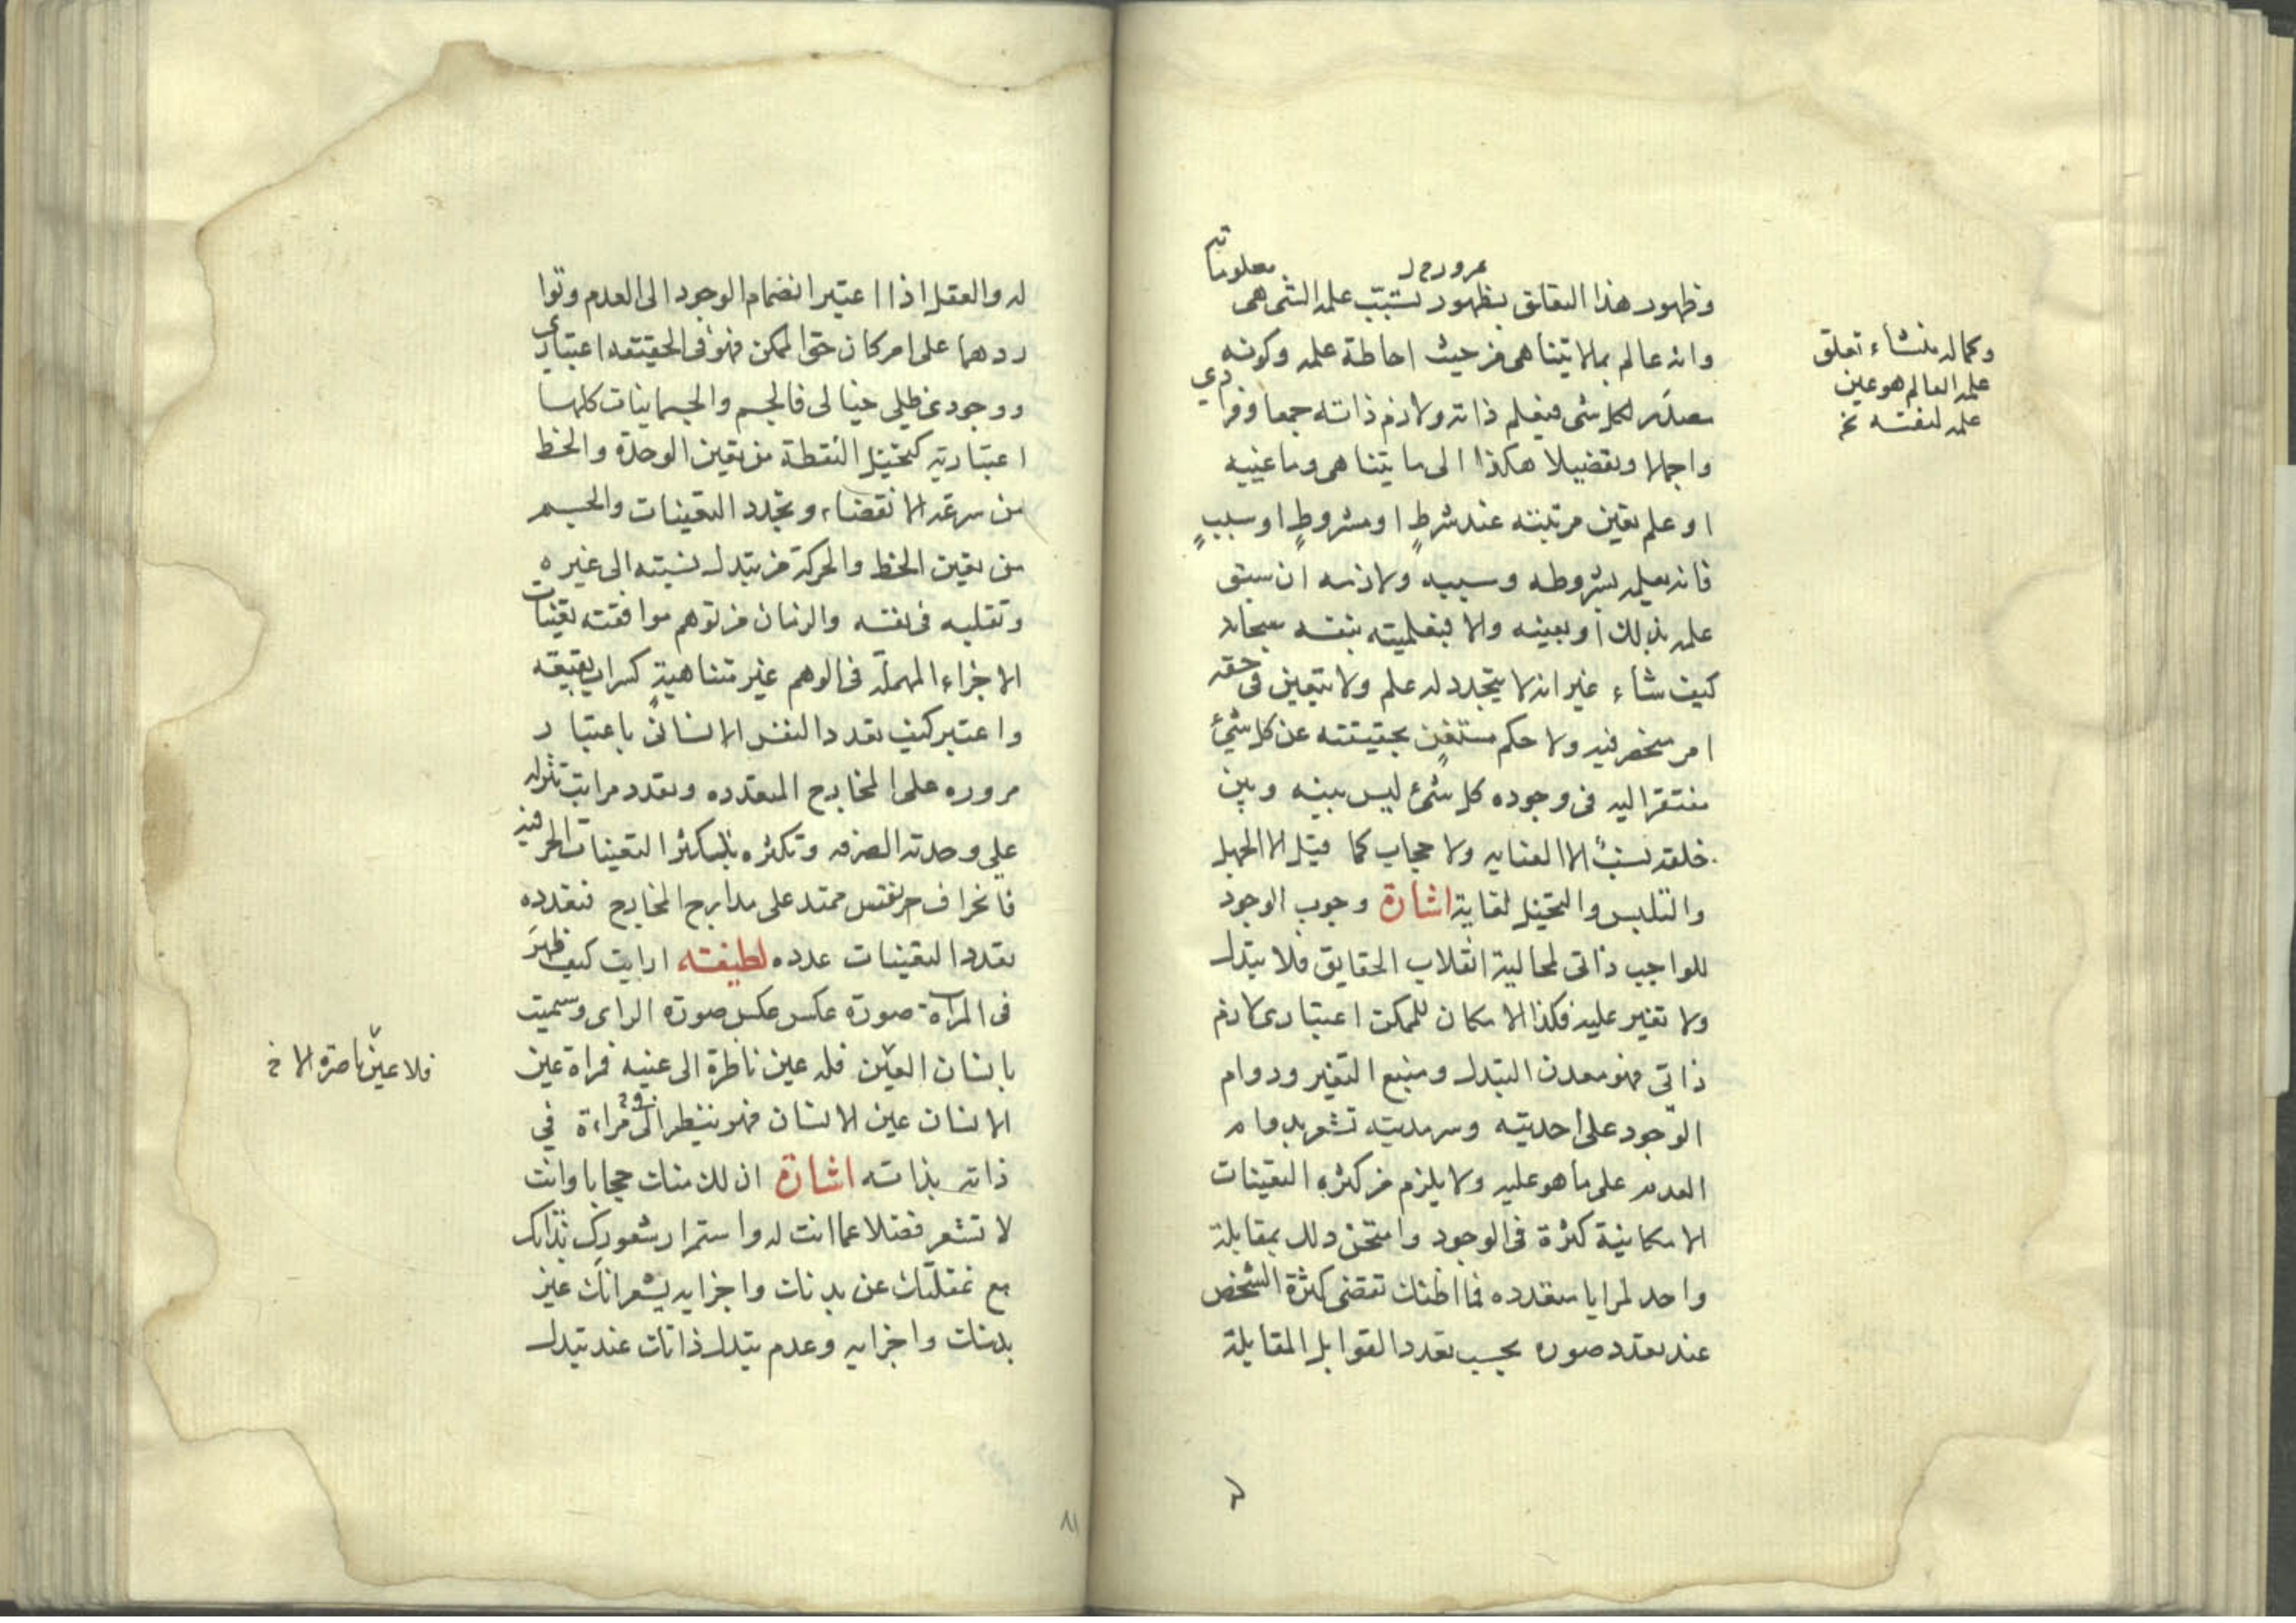 وظهور هذا التعلق بظهور نسب علمه التى هى معلوماته
وانه عالم بما لا يتناهى من حيث احاطة علمه وكونه
مصدر لكل شى فيعلم ذاته ولازم ذاته جمعا وفرادي
واجمالا وتفصيلا هكذا الى ما يتناهى وما عينه
او علم تعين مرتبته عند شرطٍ او مشروطٍ او سببٍ
فانه يعلمه بشروطه وسببه ولازمه ان سبق
علمه بذلك او بعينه والا فبعلميته بنفسه سبحانه
كيف شاء غير انه لا يتجدد له علم ولا يتعين فى حقه
امر ينحصر فيه ولا حكم مستغنٍ بحقيقته عن كل شئ
مفتقرا اليه فى وجوده كل شئ ليس بينه وبين
خلقه نسب الا العنايه ولا حجاب كما قيل الا الجهل
والتلبس والتخيل لغاية اشارة وجوب الوجود
للواجب ذاتى لمحالية انقلاب الحقايق فلا يتبدل
ولا تغير عليه فكذا الامكان للممكن اعتبارى لازم
ذاتى فهو معدن التبدل ومنبع التغير ودوام
الوجود على احديته وسرمديته تشعر بدوام
العدم على ما هو عليه ولا يلزم من كثرة التعينات
الامكانية كثرة فى الوجود وامتحن ذلك بمقابلة
واحد لمرايا متعدده فما اظنك تقضى كثرة الشخص
عند تعدد صوره بحسب تعدد القوابل المقابلة
وكماله منشاء تعلق
علمه العالم هو عين
علمه لنفسه نخ
له والعقل اذا اعتبر انضمام الوجود الى العدم وتوا
ردهما على امر كان حتى الممكن فهو فى الحقيقه اعتبارى
ووجودى ظلى خيالى فالجسم والجسمانيات كلها
اعتبارية كتخيل النقطة من تعين الوحدة والخط
من سرعة الانقضاء وتجدد التعينات والجسم
من تعين الخط والحركة من تبدل نسبته الى غيره
وتقلبه فى نفسه والزمان من توهم موافقته تعينات
الاجزاء المهملة فى الوهم غير متناهيةٍ كسراب بقيعة
واعتبر كيف تعدد النفس الانسانى باعتبار
مروره على المخارج المتعدده وتعدد مراتب تنزله
على وحدته الصرفه وتكثره بتكثر التعينات الحرفيه
فالحراف نفس ممتد على مدارج المخارج فتعدده
بتعدد التعينات عدده لطيفته ارايت كيف ظهر
فى المراة صورة عكس عكس صورة الراى وسميت
بانسان العين فله عين ناظرة الى عينه فمراة عين
الانسان عين الانسان فهو ينظر الى مراءة في
ذاته بذاته اشارة ان لك منك حجابا وانت
لا تشعر فضلا عما انت له واستمرار شعورك بذاتك
مع غفلتك عن بدنك واجزايه يشعر انك غير
بدنك واجزايه وعدم تبدل ذاتك عند تبدل
فلا عين ناصرة الا خ
٨١